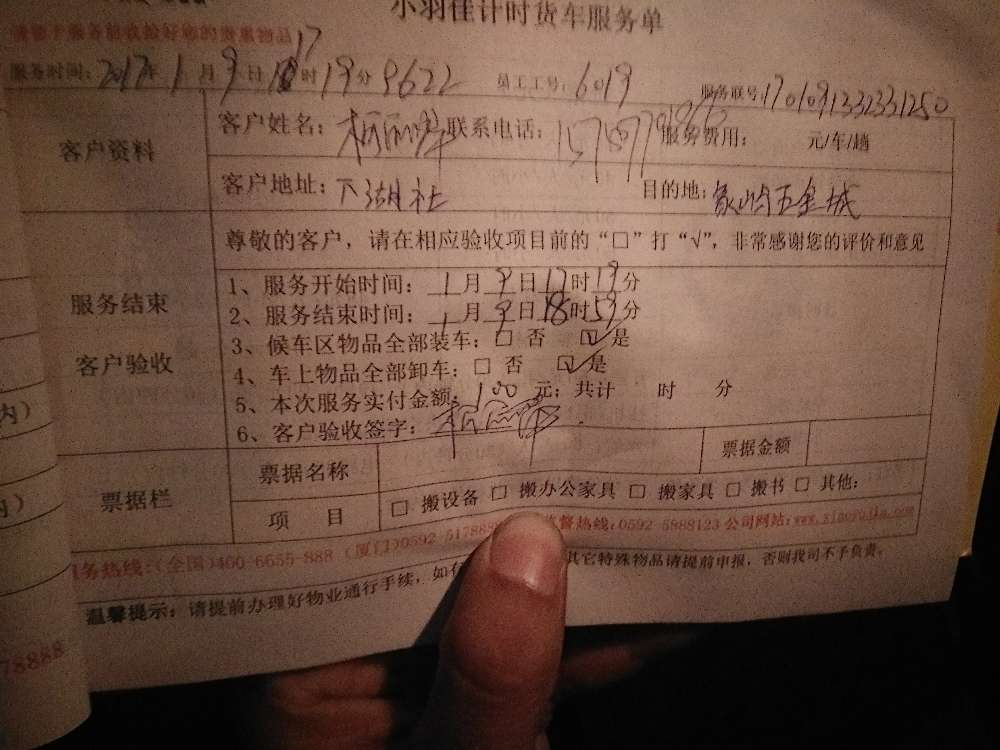 小羽佳计时货车服务单
请您于服务前收拾好您的贵重物品
服务时间: 2017年 1月 9日 17时 19分 9622 员工工号: 6019 服务联号: 1701091332331250
客户资料
客户姓名: 联系电话: 服务费用: 元/车/趟
客户地址: 下湖社 目的地: 五金城
尊敬的客户，请在相应验收项目前的“□”打“√”，非常感谢您的评价和意见
服务结束
客户验收
1、服务开始时间: 1月 9日 17时 19分
2、服务结束时间: 1月 9日 18时 59分
3、候车区物品全部装车: □ 否 ☑ 是
4、车上物品全部卸车: □ 否 ☑ 是
5、本次服务实付金额: 100 元; 共计 时 分
6、客户验收签字:
票据栏
票据名称 票据金额
项 目 □ 搬设备 □ 搬办公家具 □ 搬家具 □ 搬书 □ 其他:
务热线:(全国)400-6655-888 (厦门)0592-517888 督热线:0592-5888123 公司网站:www.xiaoyujia.com
温馨提示: 请提前办理好物业通行手续, 如 其它特殊物品请提前申报, 否则我司不予负责。
78888
内)